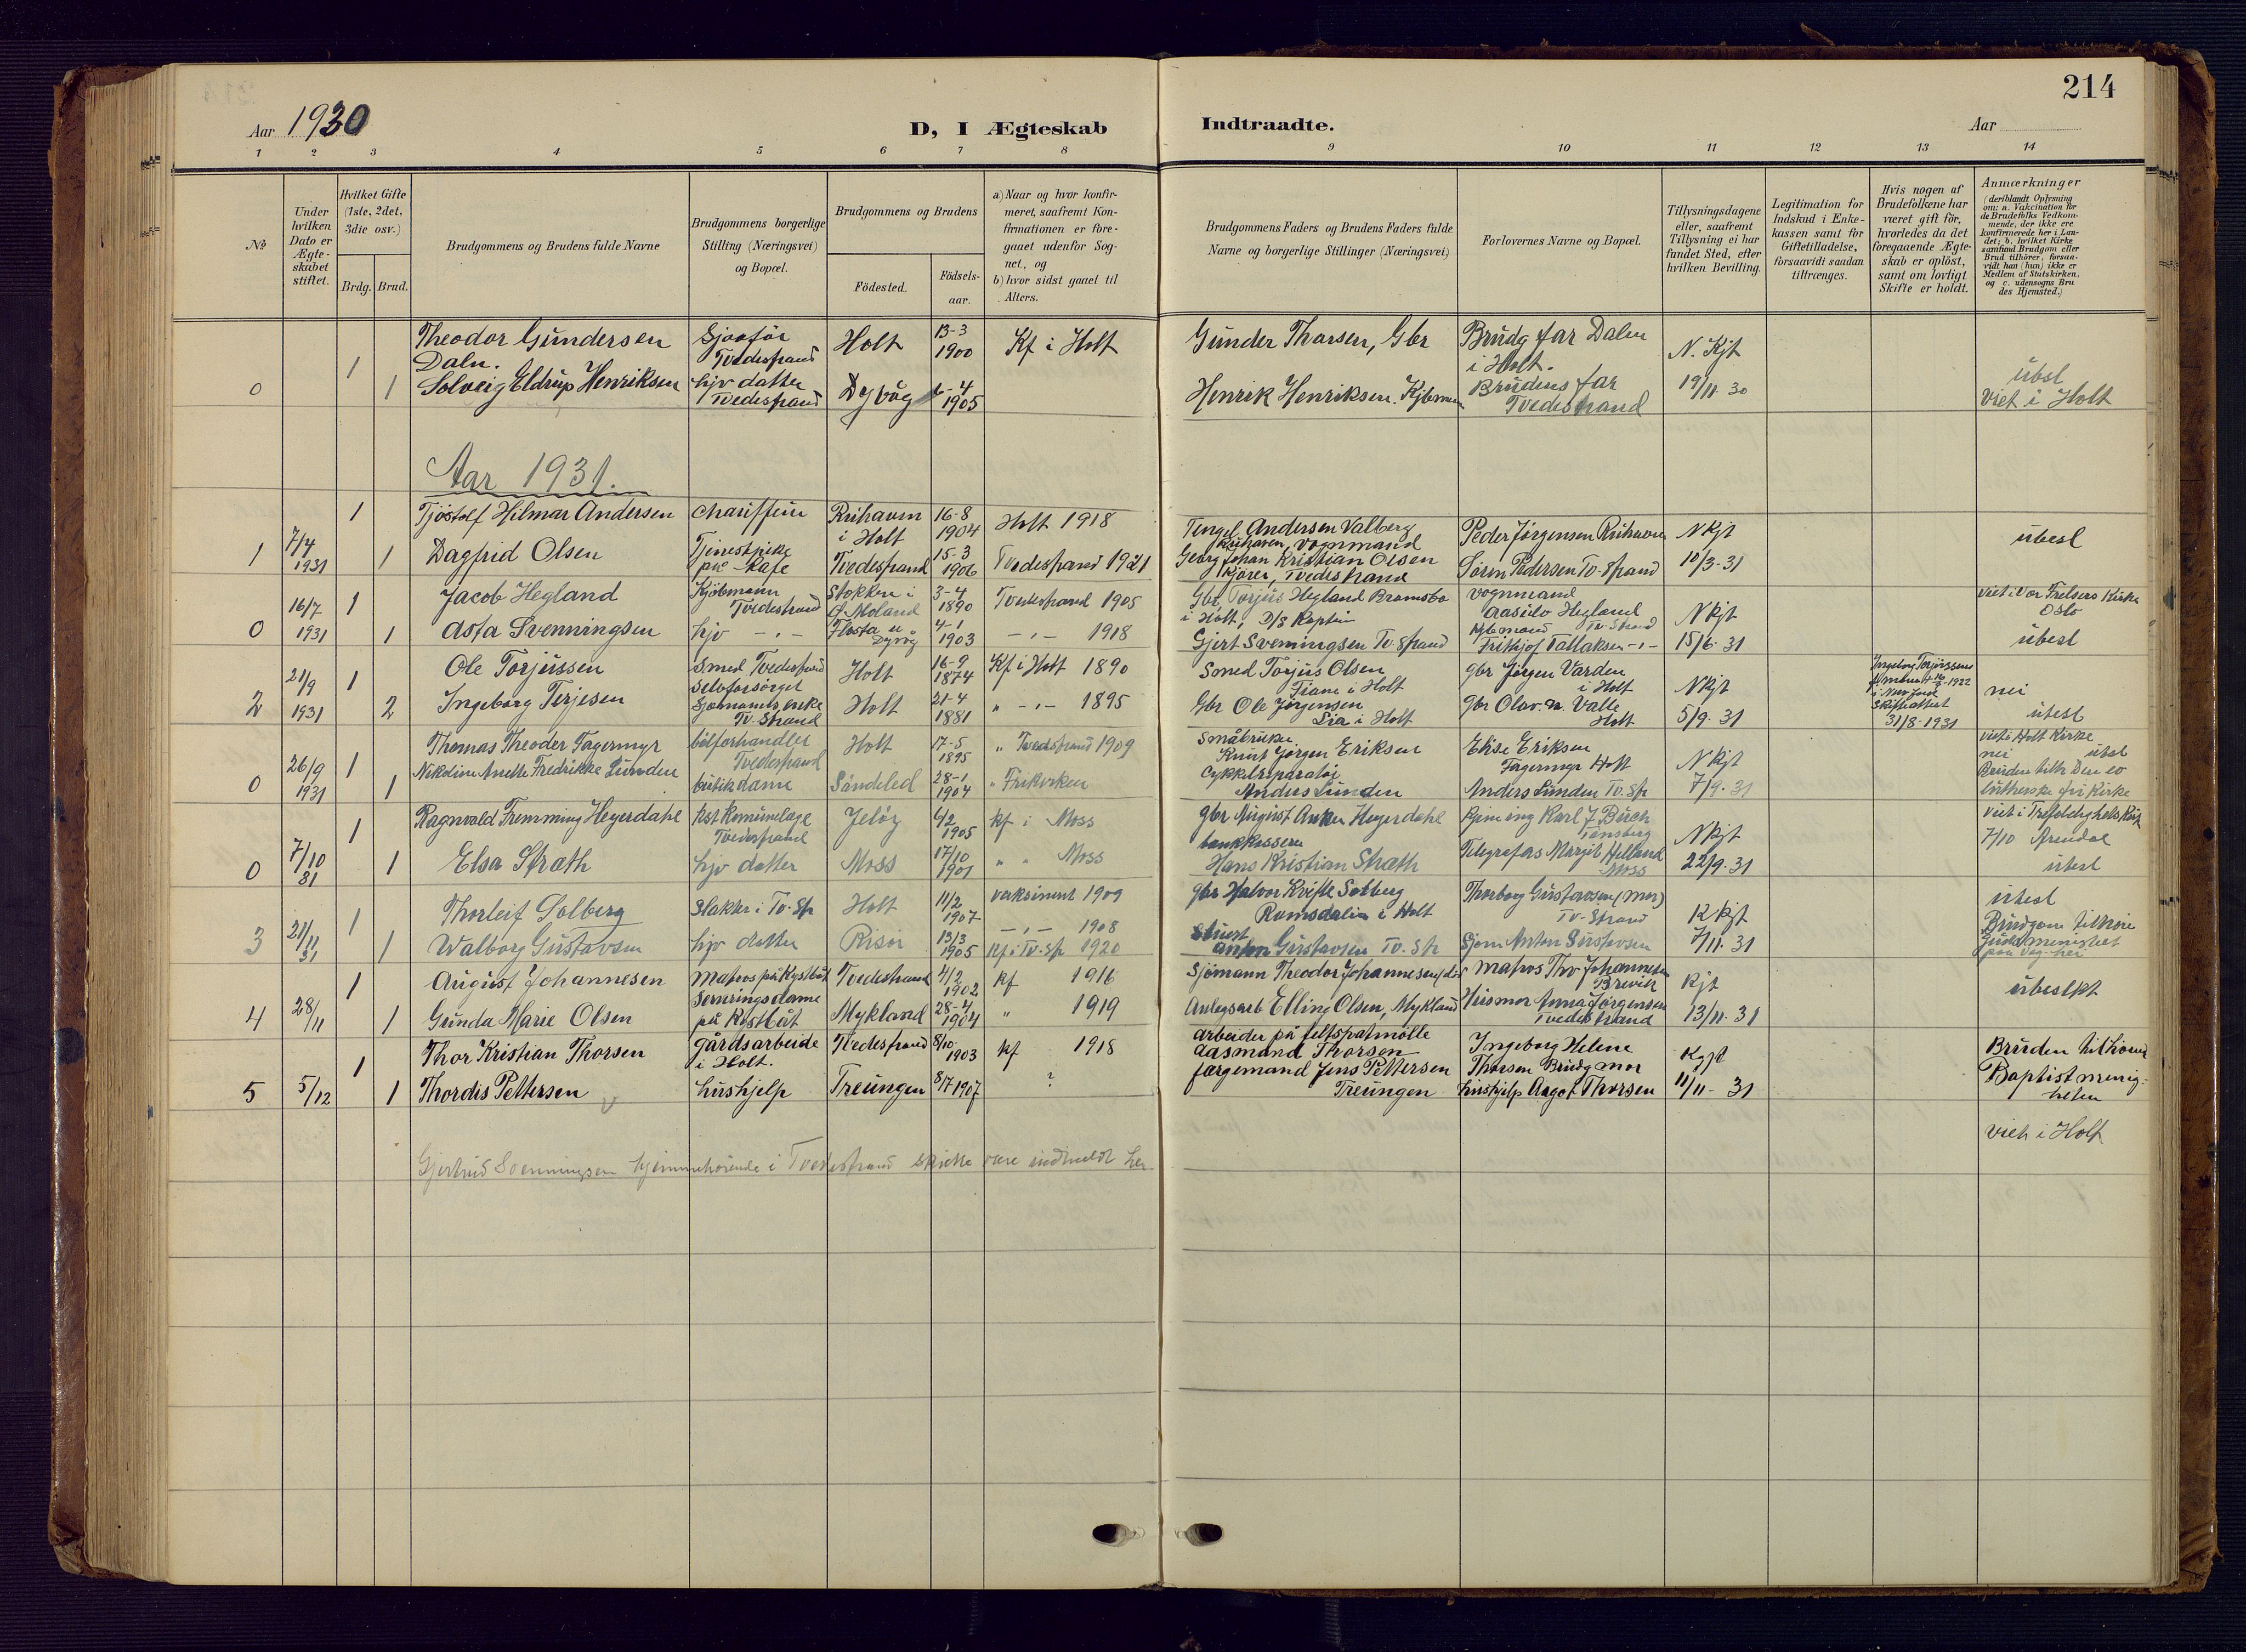 214
Aar 1930
D, I Ægteskab Indtraadte.
Aar
1 2 3 4 5 6 7 8 9 10 11 12 13 14
No
Under hvilken Dato er Ægte-skabet stiftet.
Hvilket Gifte (1ste, 2det, 3die osv.)
Brdg. Brud.
Brudgommens og Brudens fulde Navne
Brudgommens borgerlige Stilling (Næringsvei) og Bopæl.
Brudgommens og Brudens
Födested.
Födsels-aar.
a) Naar og hvor konfir-meret, saafremt Kon-firmationen er fore-gaaet udenfor Sog-net, og
b) hvor sidst gaaet til Alters.
Brudgommens Faders og Brudens Faders fulde Navne og borgerlige Stillinger (Næringsvei)
Forlovernes Navne og Bopæl.
Tillysningsdagene eller, saafremt Tillysning ei har fundet Sted, efter hvilken Bevilling.
Legitimation for Indskud i Enke-kassen samt for Giftetilladelse, forsaavidt saadan tiltrænges.
Hvis nogen af Brudefolkene har været gift för, hvorledes da det foregaaende Ægte-skab er oplöst, samt om lovligt Skifte er holdt.
Anmærkninger (deriblandt Oplysning om: a. Vakcination for de Brudefolks Vedkom-mende, der ikke ere konfirmerede her i Lan-det; b. hvilket Kirke-samfund Brudgom eller Brud tilhörer, forsaa-vidt han (hun) ikke er Medlem af Statskirken. og c. udensogns Bru-des Hjemsted.)
Theodor Gundersen Sjåfør Holt 13-3 1900 Kf i Holt Gunder Thorsen, Gbr Brudg far Dalen i Holt. N. Kjt
Daln. Tvedestrand
0 1 1 Solveig Eldrup Henriksen hjv datter Tvedestrand Dyvåg 4 1905 Henrik Henriksen. Kjbmann Brudens far Tvedestrand 19/11 30 ubst Viet i Holt
Aar 1931.
1 Tjöstolf Hilmar Andersen Rishavn i Holt 16-8 1904 Holt 1918 Tengel Andersen Valberg Rishaven, vognmand Peder Jørgensen Rishavn N Kjt
1 7/4 1931 1 Dagfrid Olsen Tjenestpike på Kafe Tvedestrand 15-3 1906 Tvedestrand 1921 Georg Johan Kristian Olsen Kjører, Tvedestrand Søren Pedersen Tv. Strand 10/3-31 ubesl
vognmand
16/7 1 Jacob Hegland Kjöbmann Tvedestrand Stokken i A. Moland 3-4 1890 Tvedestrand 1905 Gbr Torjus Hegland i Holt, D/S Kaptein Aasulv Hegland Kjbmand Tv. Strand N Kjt viet i Vor Frelsers Kirke Oslo
0 1931 1 Asta Svenningsen hjv -,- Flosta Dyvåg 4-1 1903 -,- 1918 Gjert Svenningsen Tv. Strand Frithjof Tallaksen -,- 15/6-31 ubesl
21/9 1 Ole Torjussen Smed Tvedestrand Holt 16-9 1874 Kf i Holt 1890 Smed Torjus Olsen Tiane i Holt gbr Jørgen Varden i Holt N Kjt nei
2 1931 2 Ingeborg Terjesen Selvforsörget Sjømands enke Tv. Strand Holt 21-4 1881 " -,- 1895 Gbr Ole Jørgensen Lia i Holt gbr Olav. N. Valle Holt 5/9-31 Skifteattest 31/8-1931 ubesl
26/9 1 Thomas Theodor Fagermyr bilforhandler Tvedestrand Holt 17-5 1895 " Tvedestrand 1909 Småbruker Knut Jørgen Eriksen Elise Eriksen Fagermyr Holt N Kjt viet i Holt Kirke nei ubesl
0 1931 1 Nikoline Anette Fredrikke Lunden butikdame Söndeled 28-1 1904 " Frikirken Cykkelreparatör Anders Lunden Anders Lunden Tv. Str 7/9-31 Bruden tilh Den ev lutherske frikirke
1 Ragnvald Fremming Heyerdahl Tvedestrand Jelöy 4/2 1905 kf i Moss gbr August Anker Heyerdahl Karl J Birch Tønsberg N Kjt viet i Trefoldighets Kirk
0 7/10 31 1 Elsa Strath hjv datter Moss 17/10 1901 " " Moss bankkasserer Hans Kristian Strath Telegrafas Margit Helland Moss 22/9-31 7/10 Arendal ubesl
1 Thorleif Solberg Slakter i Tv. Str Holt 11/2 1907 vaksinert 1909 gbr Halvor Kvifte Solberg Romsdalen i Holt Thorborg Gustavsen (mor) Tv. Strand K Kjt ubesl
3 21/11 31 1 Walborg Gustavsen hjv datter Risör 13/3 1905 -,- 1908 kf i Tv. Str 1920 Stuert Anton Gustavsen Tv. Str Sjøm Anton Gustavsen 7/11. 31
1 August Johannesen Matros på Kystbåt Tvedestrand 4/2 1902 kf 1916 Sjömann Theodor Johannesen (död) matros Thv Johannesen Kjt ubeslkt
4 28/11 1 Gunda Marie Olsen Serveringsdame på Kystbåt Mykland 28-4 1904 " 1919 Anlegsarb Elling Olsen, Mykland Husmor Anna Jørgensen Tvedestrand 13/11-31
1 Thor Kristian Thorsen gårdsarbeide i Holt. Tvedestrand 8/10 1903 kf 1918 arbeider på feltspatmölle Aasmund Thorsen Ingeborg Helene Thorsen Brudg mor Kgjt Bruden tilhörer
5 5/12 1 Thordis Pettersen hushjelp Treungen 8/7 1907 ? færgemand Jens Pettersen Treungen hushjelp Aagot Thorsen 11/11-31 Baptistmenig-heten
viet i Holt
Gjertrud Svenningsen hjemmehørende i Tvedestrand skulle være indmeldt her